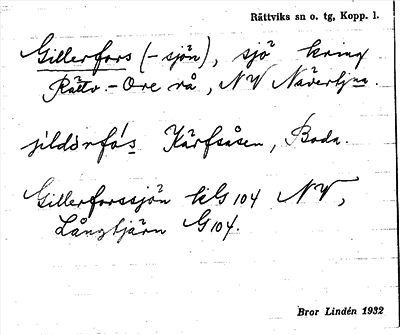 Rättviks sn o. tg, Kopp. l.
Gillerfors (-sjön), sjö kring
Rättv-Ore rå, NV Näverbjna.
jildərfó̀s Kärfsåsen, Boda.
Gillerforssjön kG104 NV,
Långtjärn G104.
Bror Lindén 1932